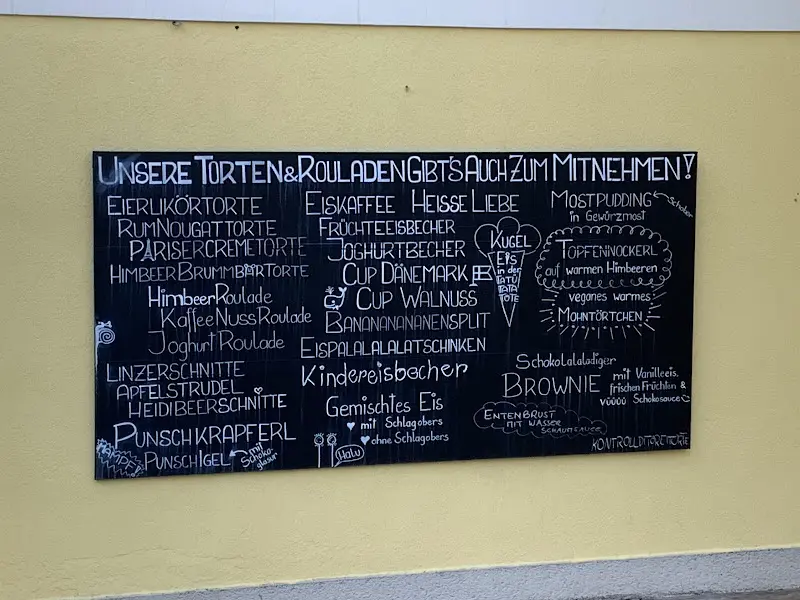 UNSERE TORTEN & ROULADEN GIBT'S AUCH ZUM MITNEHMEN!
EIERLIKÖRTORTE
RUMNOUGATTORTE
PARISERCREMETORTE
HIMBEERBRUMMBÄRTORTE
HimbeerRoulade
KaffeeNussRoulade
JoghurtRoulade
LINZERSCHNITTE
APFELSTRUDEL
HEIDIBEERSCHNITTE
PUNSCHKRAPFERL
PUNSCHIGEL
mit
Schoko-
glasur
EISKAFFEE HEISSE LIEBE
FRÜCHTEEISBECHER
JOGHURTBECHER
CUP DÄNEMARK
CUP WALNUSS
BANANANANANENSPLIT
EISPALALALALATSCHINKEN
Kindereisbecher
Gemischtes Eis
mit Schlagobers
ohne Schlagobers
Halu
KUGEL
EIS
in der
TATÜ
TATA
TÜTE
MOSTPUDDING
Schoker
in Gewürzmost
TOPFENNOCKERL
auf warmen Himbeeren
veganes warmes
MOHNTÖRTCHEN
Schokolalaladiger
BROWNIE
mit Vanilleeis,
frischen Früchten &
vüüüü Schokosauce
ENTENBRUST
MIT WASSER
SCHAUMSAUCE
KONTROLLDITOREITORTE